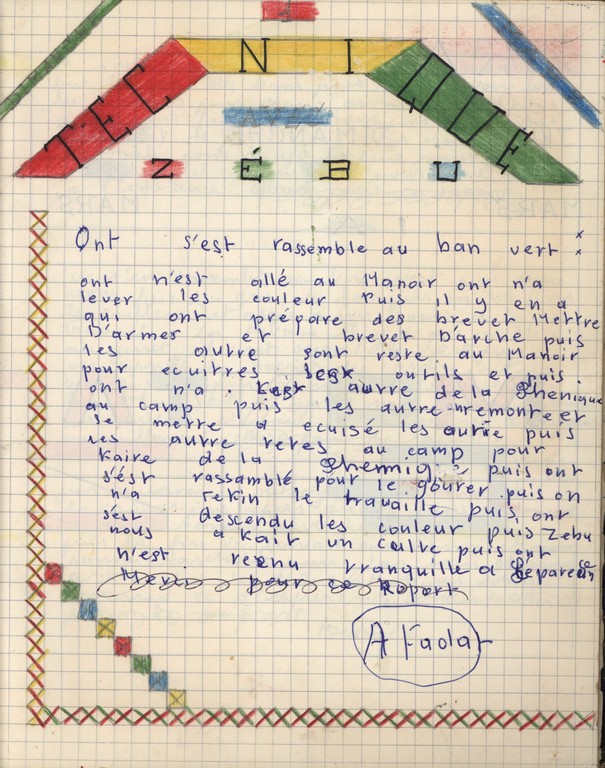 TEC NI QUE
AVEC
ZÉBU
Ont s'est rassemble au ban vert :
ont n'est allé au Manoir ont n'a
lever les couleur Puis il y en a
qui ont prépare des brevet Mettre
D'armes et brevet D'arche puis
les autre sont reste au Manoir
pour outils et puis
ont n'a autre de la Phenique
au camp puis les autre remonte er
se mettre a ecuisé les autre puis
les autre retes au camp pour
Faire de la puis ont
s'ést rassamblé pour le goûter puis on
n'a refin le travaille puis ont
s'est descendu les couleur puis Zebu
nous a Fait un culte puis ont
n'est revnu tranquille a
Merci pour ce Roport
A Faola